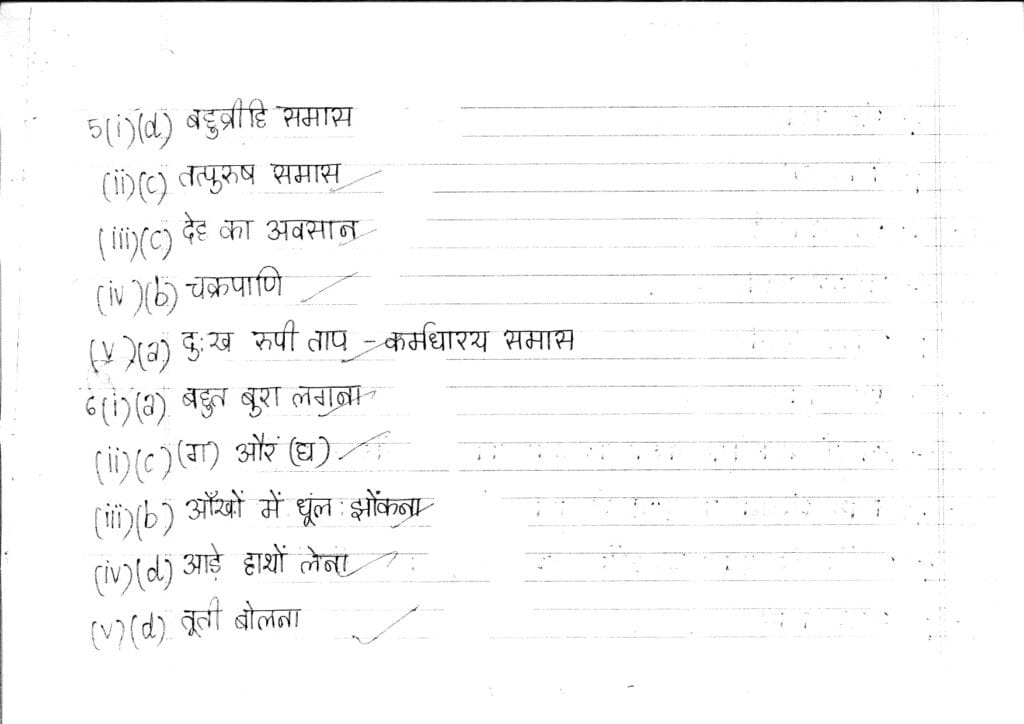 5(i)(d) बहुव्रीहि समास
(ii)(c) तत्पुरुष समास
(iii)(c) देह का अवसान
(iv)(b) चक्रपाणि
(v)(a) दुःख रुपी ताप - कर्मधारय समास
6(i)(a) बहुत बुरा लगना
(ii)(c) (ग) और (घ)
(iii)(b) आँखों में धूल झोंकना
(iv)(d) आड़े हाथों लेना
(v)(d) तूती बोलना